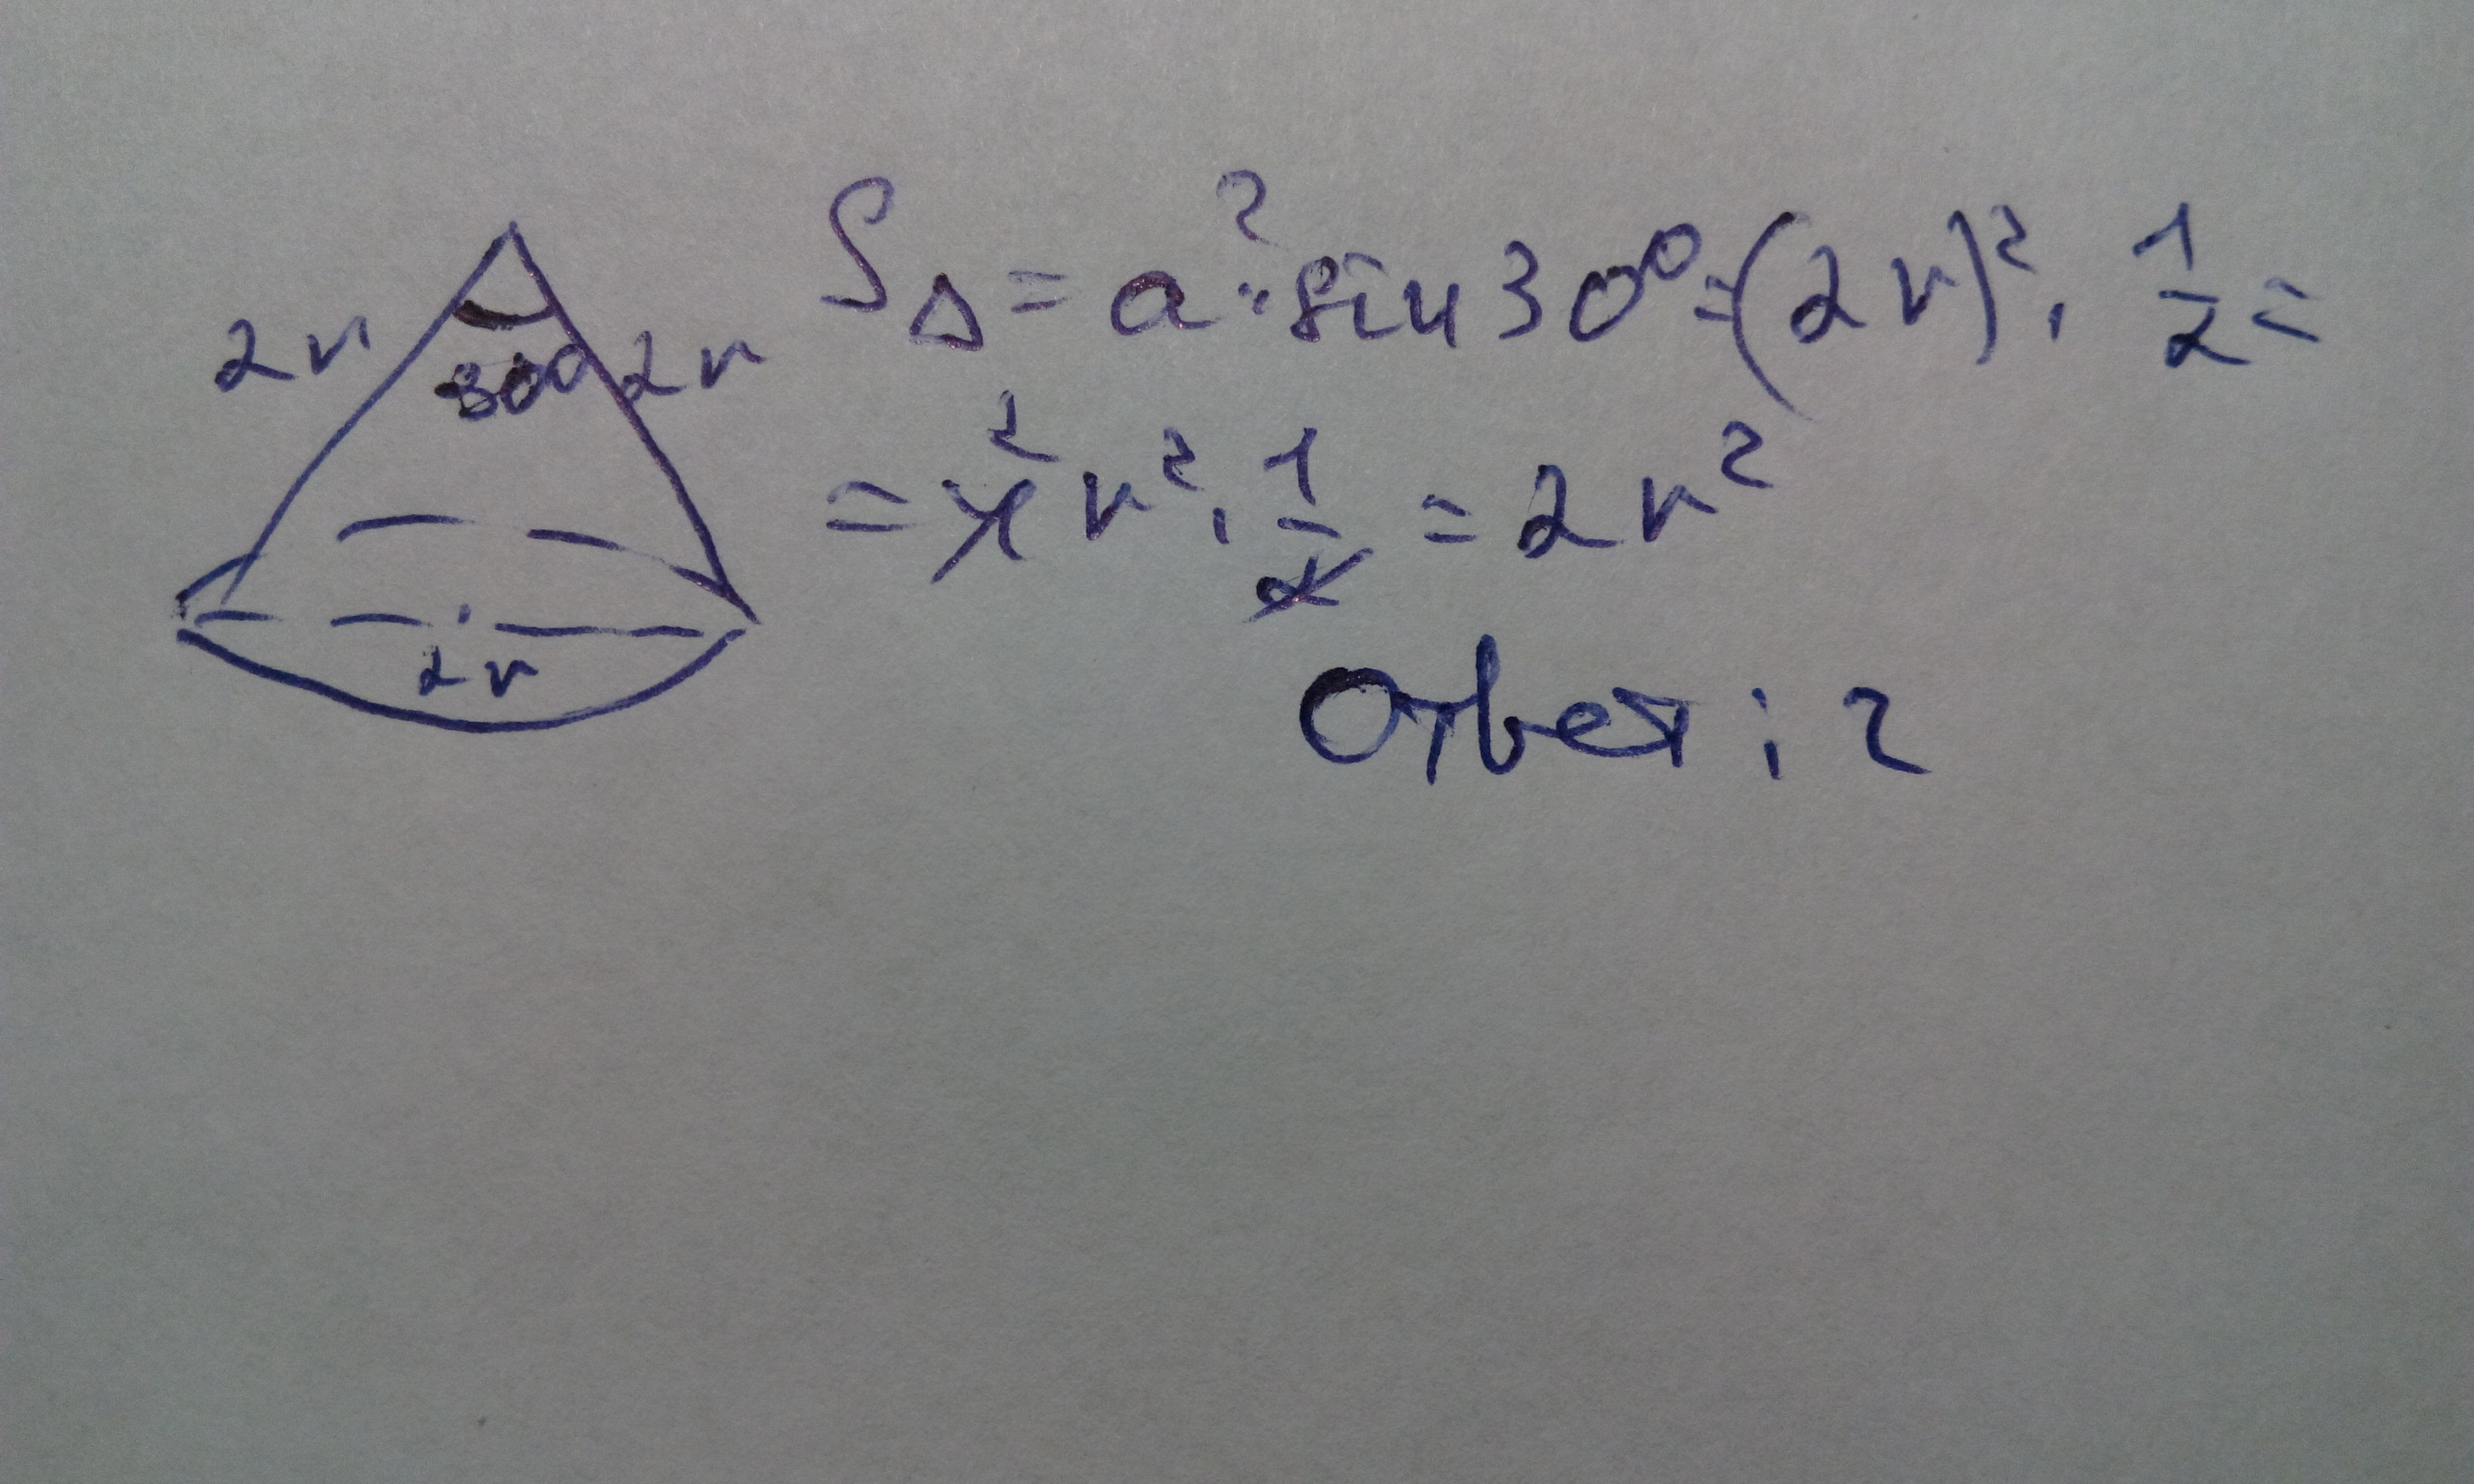 2r 30° 2r
2r
S△ = a²·sin30° = (2r)²·1/2 =
= 4² r²·1/2 = 2r²
Ответ: 2